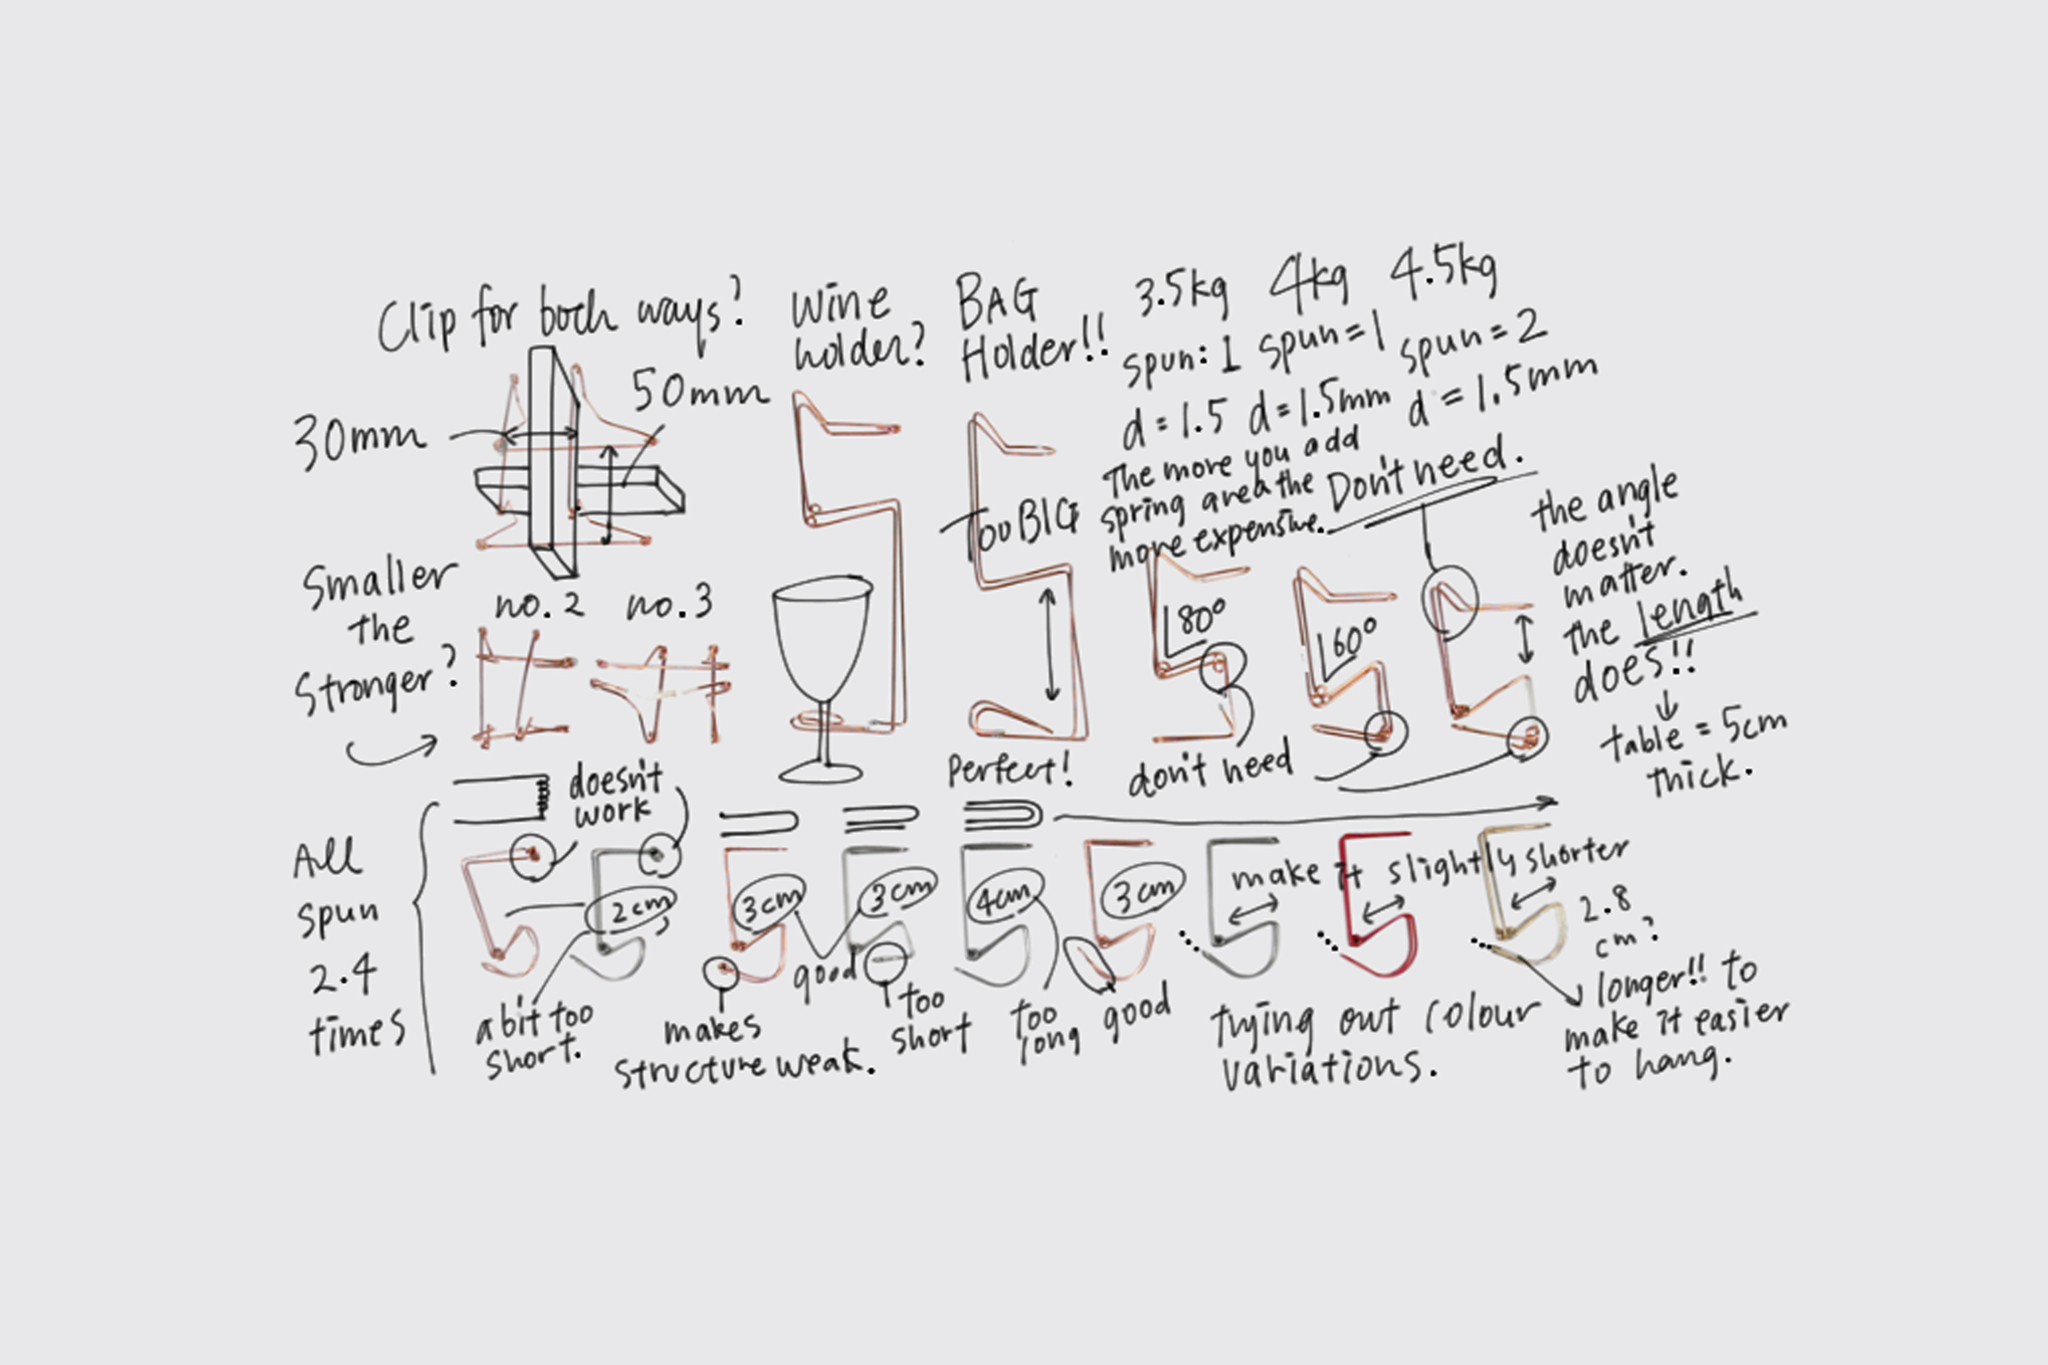 Clip for both ways?
30mm
50mm
Wine
holder?
BAG
Holder!!
TOO BIG
3.5kg 4kg 4.5kg
spun: 1 spun=1 spun=2
d=1.5 d=1.5mm d=1.5mm
The more you add
spring area the
more expensive.
Don't need.
the angle
doesn't
matter.
the length
does!!
table = 5cm
thick.
Smaller
the
Stronger?
no.2 no.3
80°
60°
Perfect!
don't need
All
spun
2.4
times
doesn't
work
2cm
3cm
3cm
4cm
3cm
make it slightly shorter
2.8
cm?
a bit too
short.
makes
structure weak.
good
too
short
too
long
good
trying out colour
variations.
longer!! to
make it easier
to hang.